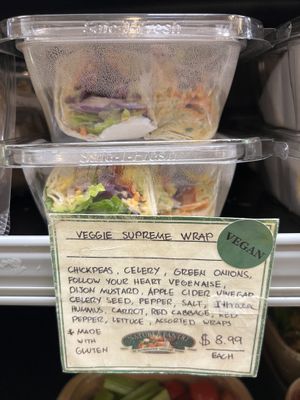 Safe-T-Fresh
Safe-T-Fresh
VEGGIE SUPREME WRAP
VEGAN
CHICKPEAS, CELERY, GREEN ONIONS,
FOLLOW YOUR HEART VEGENAISE,
DIJON MUSTARD, APPLE CIDER VINEGAR
CELERY SEED, PEPPER, SALT,
HUMMUS, CARROT, RED CABBAGE, RED
PEPPER, LETTUCE, ASSORTED WRAPS
* MADE
WITH
GLUTEN
$ 8.99
EACH